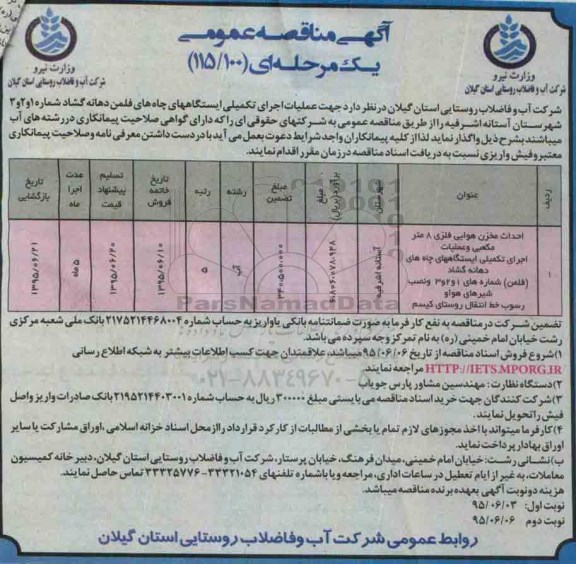 آگهی مناقصه عمومی
یک مرحله‌ای (۱۱۵/۱۰۰)
وزارت نیرو
شرکت آب و فاضلاب روستایی استان گیلان
وزارت نیرو
شرکت آب و فاضلاب روستایی استان گیلان
شرکت آب و فاضلاب روستایی استان گیلان در نظر دارد جهت عملیات اجرای تکمیلی ایستگاههای چاه های فلمن دهانه گشاد شماره ۱و۲و۳
شهرستان آستانه اشرفیه را از طریق مناقصه عمومی به شرکتهای حقوقی ای را که دارای گواهی صلاحیت پیمانکاری در رشته های آب
میباشند بشرح ذیل واگذار نماید لذا از کلیه پیمانکاران واجد شرایط دعوت بعمل می آید با در دست داشتن معرفی نامه و صلاحیت پیمانکاری
معتبر و فیش واریزی نسبت به دریافت اسناد مناقصه در زمان مقرر اقدام نمایند.
ردیف
عنوان
شهرستان
مبلغ برآورد (ریال)
مبلغ تضمین
رشته
رتبه
تاریخ خاتمه فروش
تسلیم پیشنهاد قیمت
مدت اجرا ماه
تاریخ بازگشایی
۱
احداث مخزن هوایی فلزی ۸ متر
مکعبی و عملیات
اجرای تکمیلی ایستگاههای چاه های
دهانه گشاد
(فلمن) شماره های ۱و۲و۳ ونصب
شیرهای هوا و
رسوب خط انتقال روستای کیسم
آستانه اشرفیه
آب
۵
۱۳۹۵/۰۶/۱۰
۱۳۹۵/۰۶/۲۰
۵ ماه
۱۳۹۵/۰۶/۲۱
ParsNamadData
۰۲۱-۸۸۳۴۹۶۷۰-۵
تضمین شرکت در مناقصه به نفع کارفرما به صورت ضمانتنامه بانکی یا واریز به حساب شماره ۲۱۷۵۲۱۴۴۶۸۰۰۴ بانک ملی شعبه مرکزی
رشت خیابان امام خمینی (ره) به نام تمرکز وجه سپرده می باشد.
۱)شروع فروش اسناد مناقصه از تاریخ ۹۵/۰۶/۰۶ میباشد، علاقمندان جهت کسب اطلاعات بیشتر به شبکه اطلاع رسانی
HTTP://IETS.MPORG.IR مراجعه نمایند.
۲)دستگاه نظارت: مهندسین مشاور پارس جویاب
۳)شرکت کنندگان جهت خرید اسناد مناقصه می بایستی مبلغ ۳۰۰۰۰۰ ریال به حساب شماره ۲۱۹۵۲۱۴۴۰۳۰۰۱ بانک صادرات واریز واصل
فیش را تحویل نمایند.
۴)کارفرما میتواند با اخذ مجوزهای لازم تمام یا بخشی از مطالبات از کارکرد قرارداد را از محل اسناد خزانه اسلامی، اوراق مشارکت یا سایر
اوراق بهادار پرداخت نماید.
ب)نشانی رشت: خیابان امام خمینی، میدان فرهنگ، خیابان پرستار، شرکت آب و فاضلاب روستایی استان گیلان، دبیرخانه کمیسیون
معاملات، به غیر از ایام تعطیل در ساعات اداری، مراجعه و یا با شماره تلفنهای ۳۳۳۲۱۰۵۴-۳۳۳۲۵۷۷۶ تماس حاصل نمایند.
هزینه دو نوبت آگهی بعهده برنده مناقصه میباشد.
نوبت اول: ۹۵/۰۶/۰۳
نوبت دوم ۹۵/۰۶/۰۶
روابط عمومی شرکت آب و فاضلاب روستایی استان گیلان